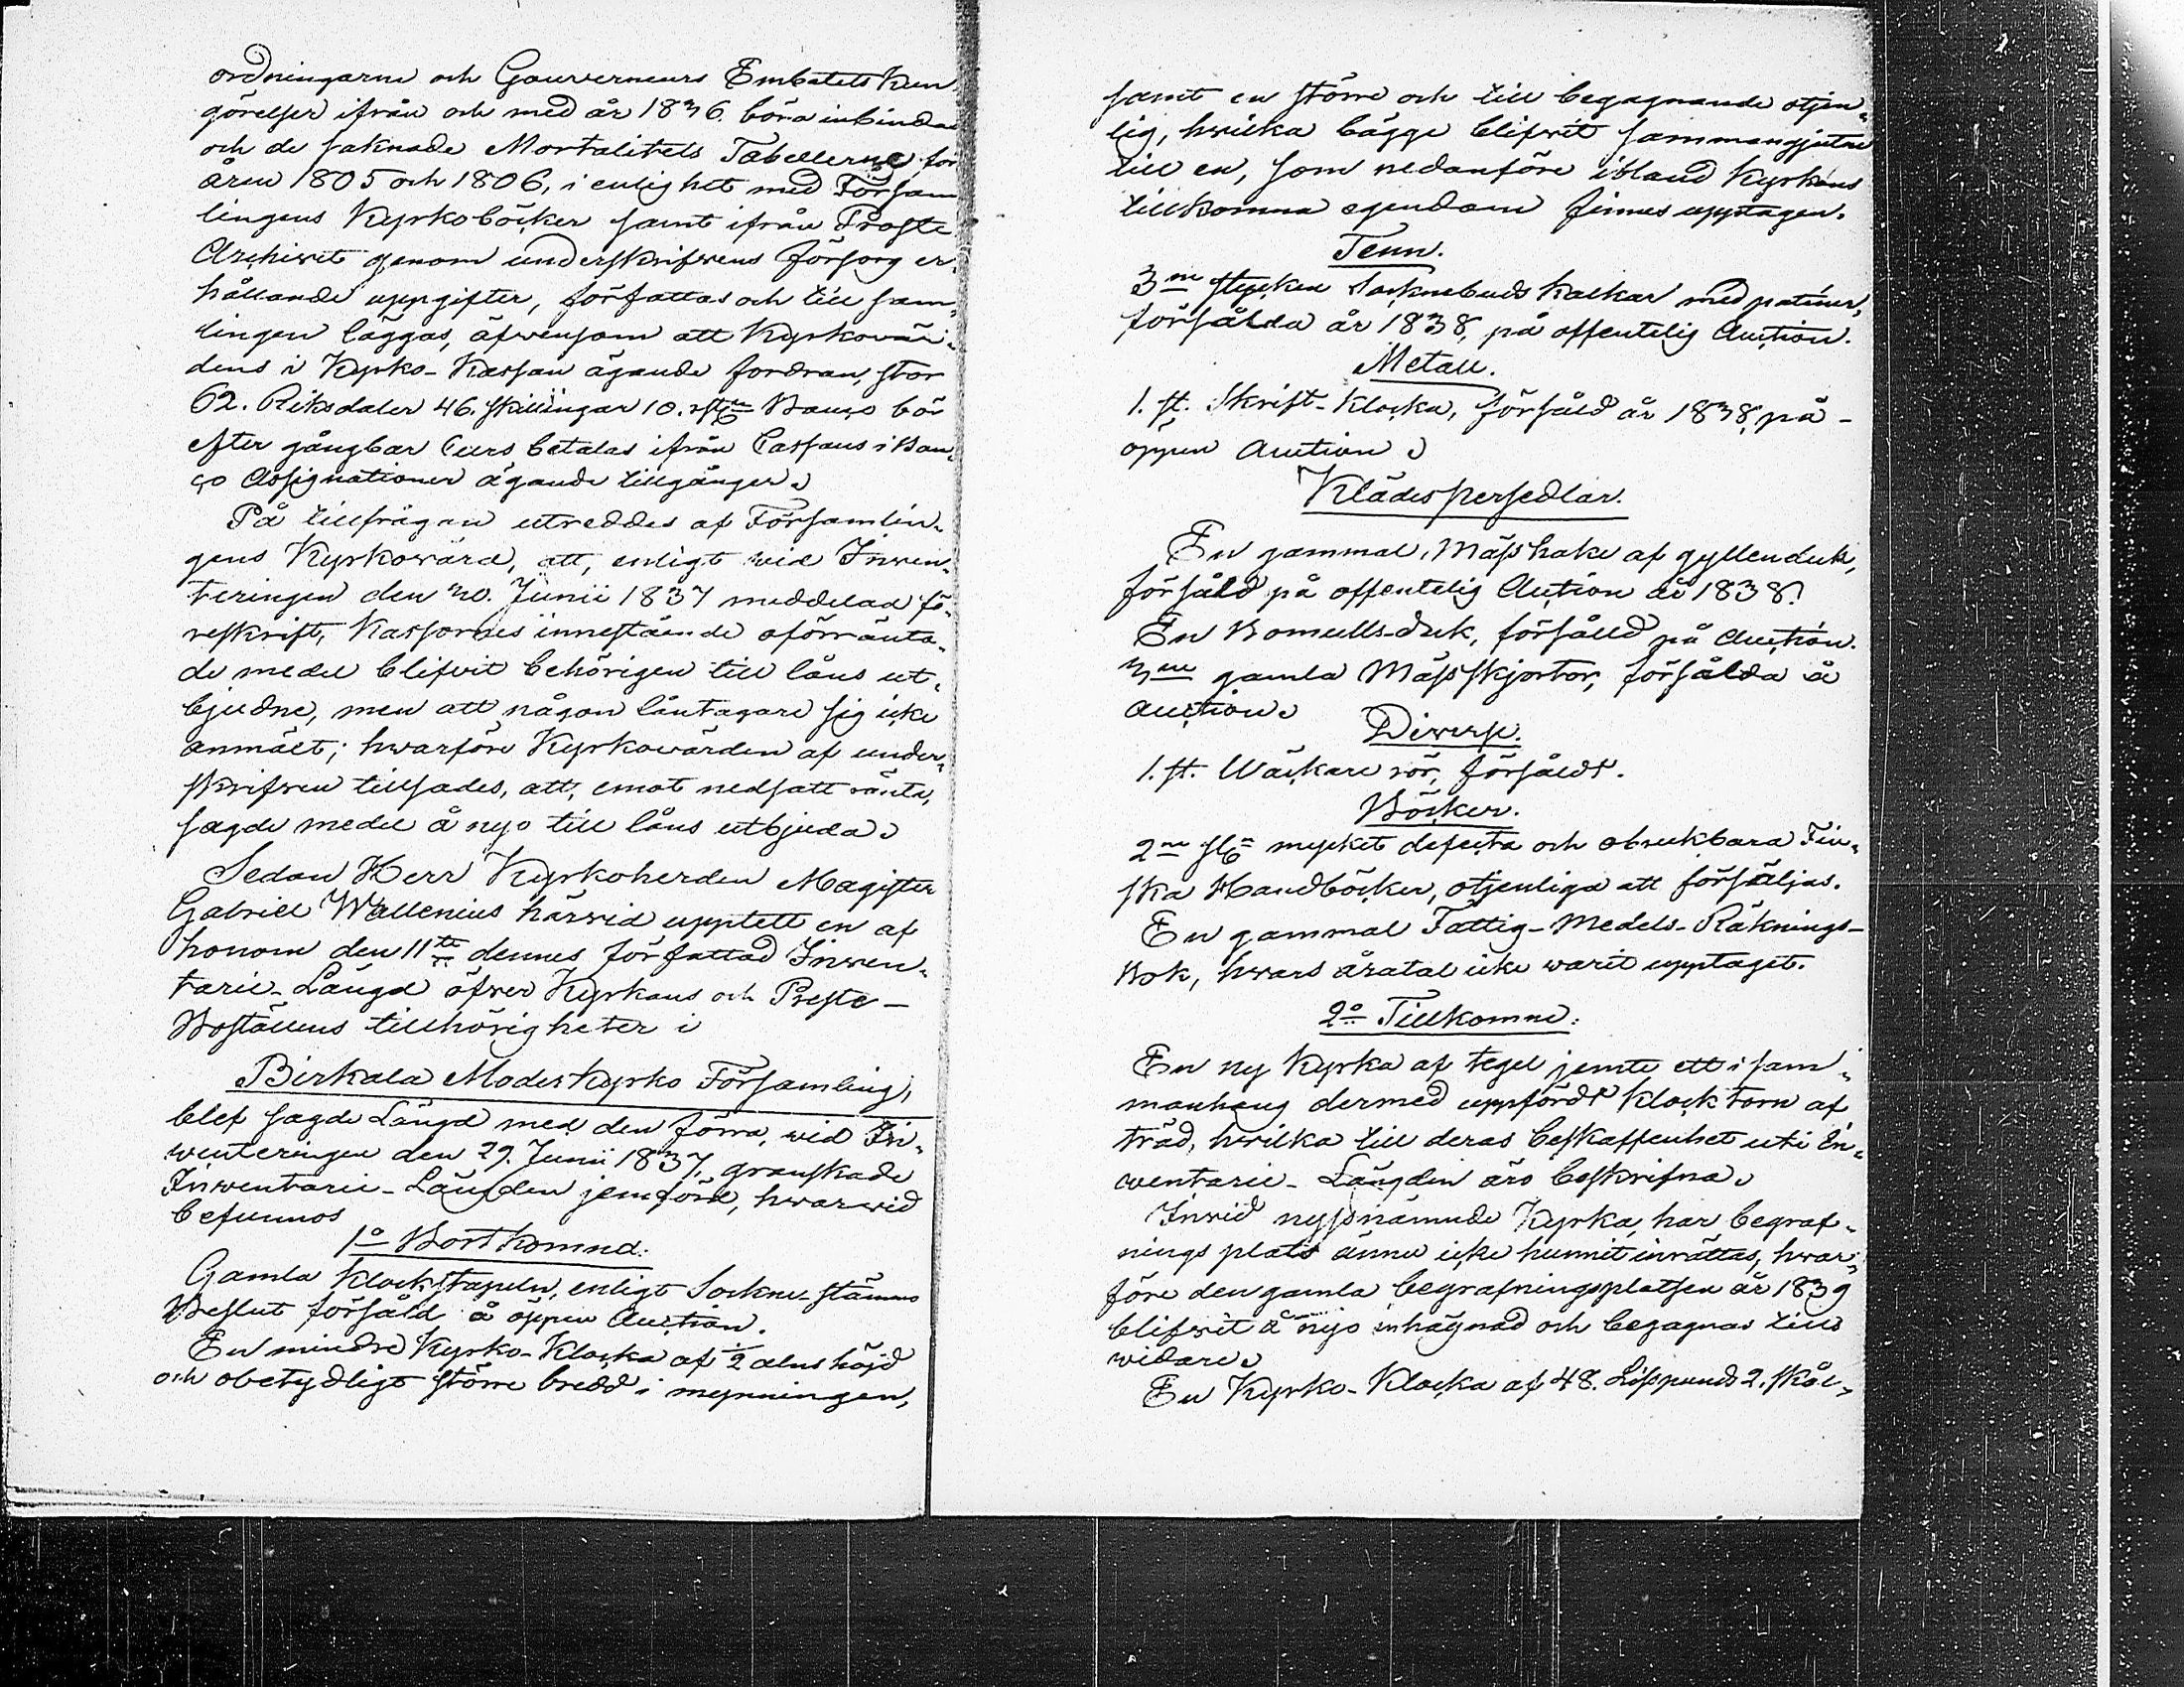 ordningarne och Gouverneurs Embetets Kun
görelser ifrån och med år 1836. böra inbindas
och de saknade Mortalitets Tabellerne för
åren 1805 och 1806, i enlighet med Försam
lingens Kyrkoböcker samt ifrån Proste
Archivet genom underskrifvens försorg er-
hållande uppgifter, författas och till sam-
lingen läggas, äfvensom att Kyrkovär-
dens i Kyrko-Kassan ägande fordran, stor
62. Riksdaler 46. skillingar 10. rst Banco bör
efter gångbar Curs betalas ifrån Cassans i Ban-
co Assignationer ägande tillgångar.
På tillfrågan utreddes af Församlin-
gens Kyrkovärd, att, enligt vid Inven-
teringen den 20. Junii 1837 meddelad fö-
reskrift, Kassornes innestående oförränta-
de medel blifvit behörigen till låns ut-
bjudne, men att någon låntagare sig icke
anmält; hvarföre Kyrkovärden af under-
skrifven tillsades, att, emot nedsatt ränta,
sagde medel å nyo till låns utbjuda.
Sedan Herr Kyrkoherden Magister
Gabriel Wallenius härvid upptett en af
honom den 11te dennes författad Inven-
tarie-Längd öfver Kyrkans och Preste-
Boställens tillhörigheter i
Birkala Moderkyrko Församling,
blef sagde Längd med den förra, vid In-
venteringen den 29. Junii 1837, granskade
Inventarie-Längden jemförd, hvarvid
befunnos
1o Bortkomna:
Gamla Klockstapeln, enligt Sockne-stämmo
Beslut försåld å öppen Auction.
En mindre Kyrko-Klocka af 1/2 alns höjd
och obetydligt större bredd i mynningen,
samt en större och till begagnande otjen-
lig, hvilka bägge blifvit sammangjutne
till en, som nedanföre ibland Kyrkans
tillkomna egendom finnes upptagen.
Tenn.
3ne stycken Socknebuds Kalkar med patiner,
försålda år 1838, på offentelig Auction.
Metall.
1. st. Skrift-Klocka, försåld år 1838, på
öppen Auction.
Klädespersedlar.
En gammal, Mässhake af gyllenduk,
försåld på offentelig Auction år 1838.
En Bomullsduk, försålld på Auction.
3ne gamla Mässskjortor, försålda å
Auction.
Diverse.
1. st. Wäckare rör, försåldt.
Böcker.
2ne st mycket defecta och obrukbara Fin-
ska Handböcker, otjenliga att försäljas.
En gammal Fattig-Medels-Räknings-
Bok, hvars åratal icke warit upptaget.
2o Tillkomne:
En ny Kyrka af tegel jemte ett i sam-
manhang dermed uppfördt Klocktorn af
träd, hvilka till deras beskaffenhet uti In-
ventarie-Längden äro beskrifna.
Invid nyssnämnde Kyrka, har begraf-
nings plats ännu icke hunnit inrättas, hvar-
före den gamla begrafningsplatsen år 1839
blifvit å nyo inhägnad och begagnas tills
vidare.
En Kyrko-Klocka af 48. Lispund 2. skål-